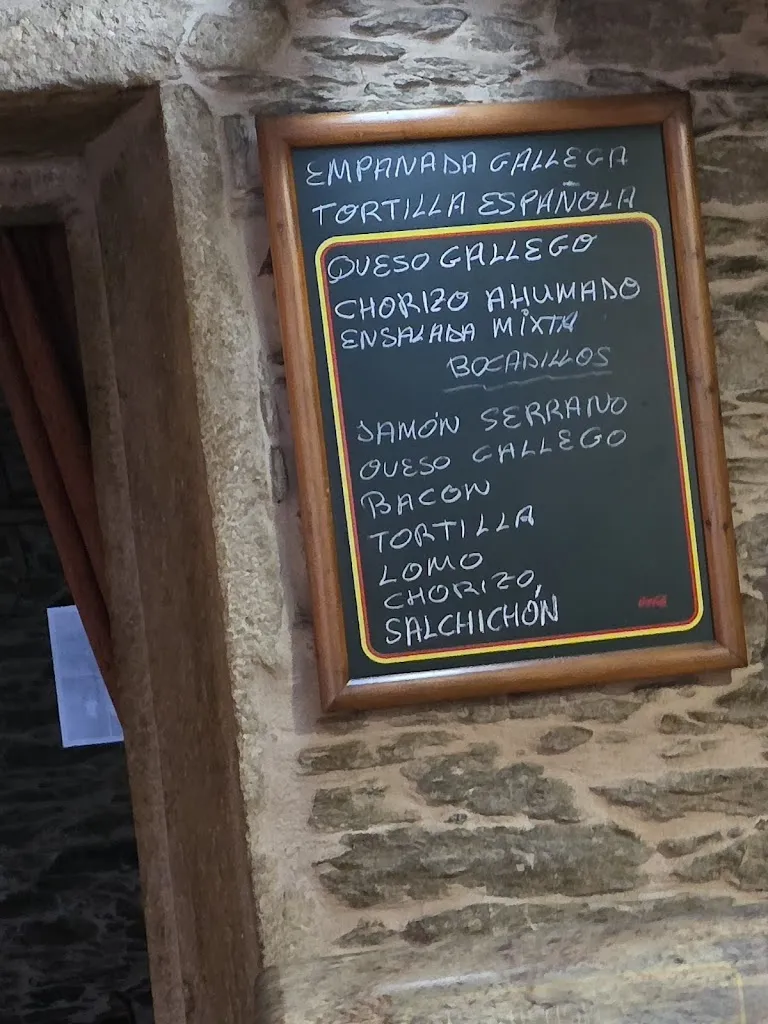 EMPANADA GALLEGA
TORTILLA ESPAÑOLA
QUESO GALLEGO
CHORIZO AHUMADO
ENSALADA MIXTA
BOCADILLOS
JAMÓN SERRANO
QUESO GALLEGO
BACON
TORTILLA
LOMO
CHORIZO
SALCHICHÓN
Coca-Cola